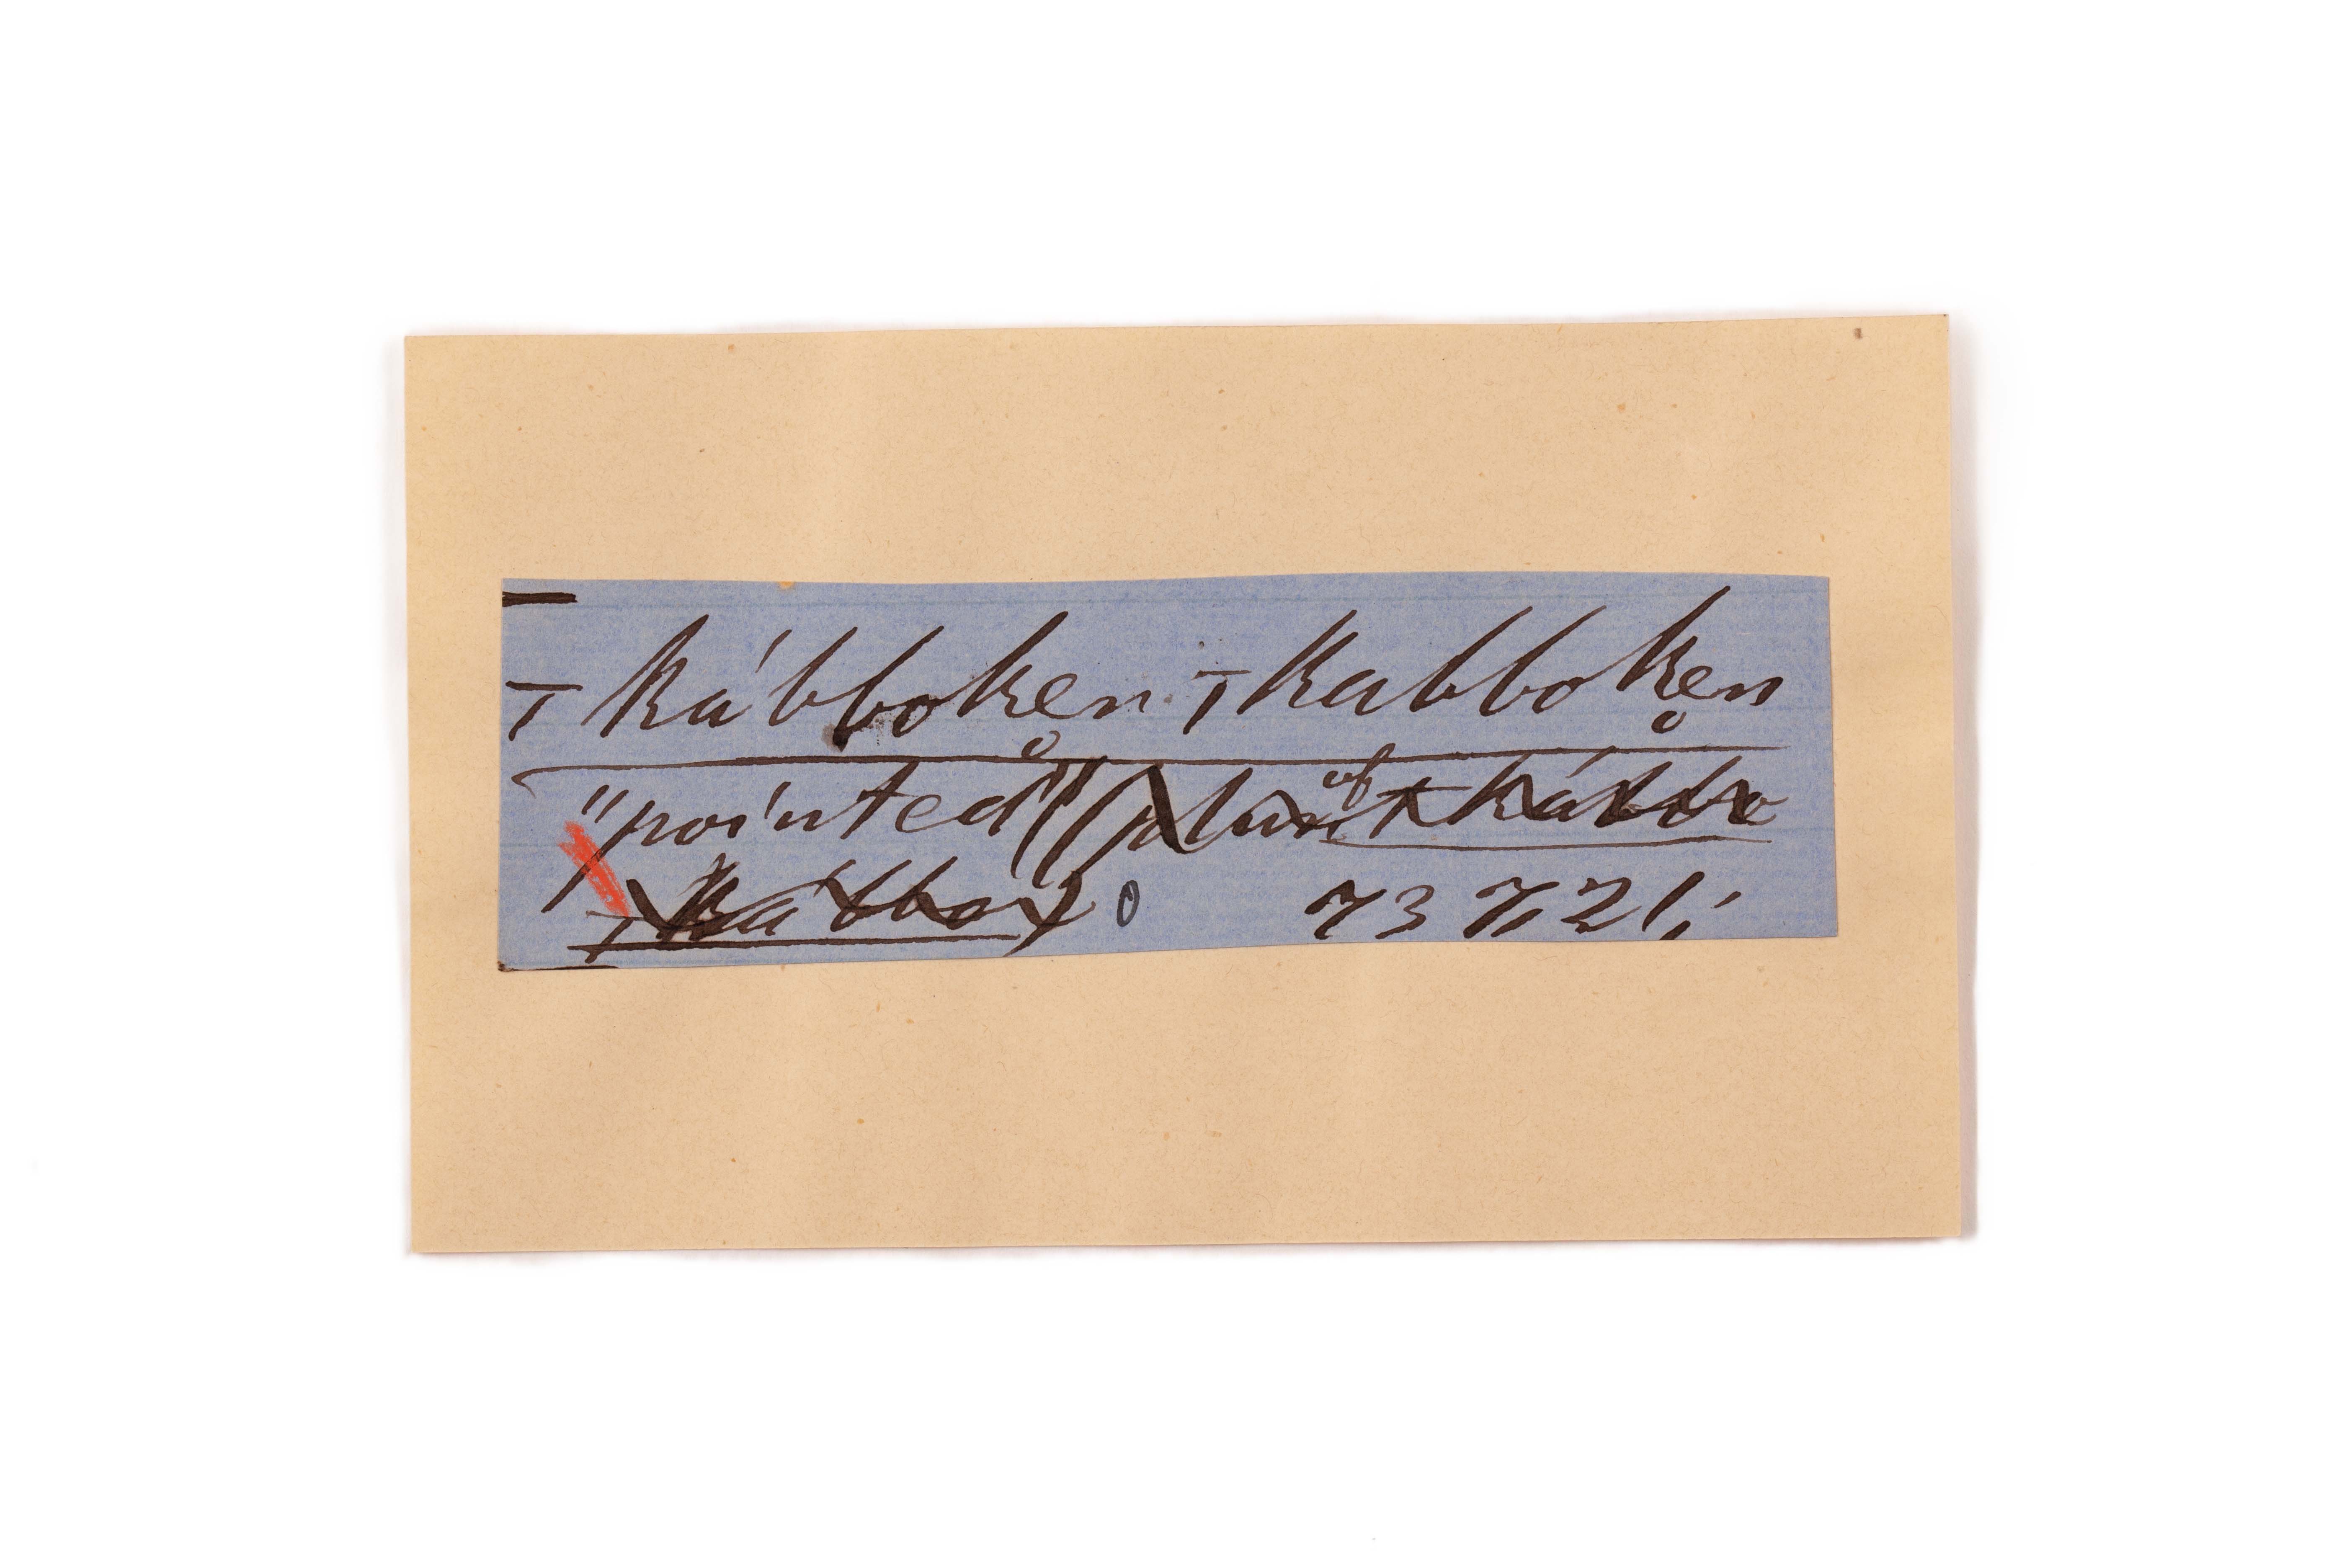 ⊤kábbok̥en ⊤kabbok̥en
"pointed" (plur. of ⊤kábbo
⊤kábbo) 0 73 7,21,'